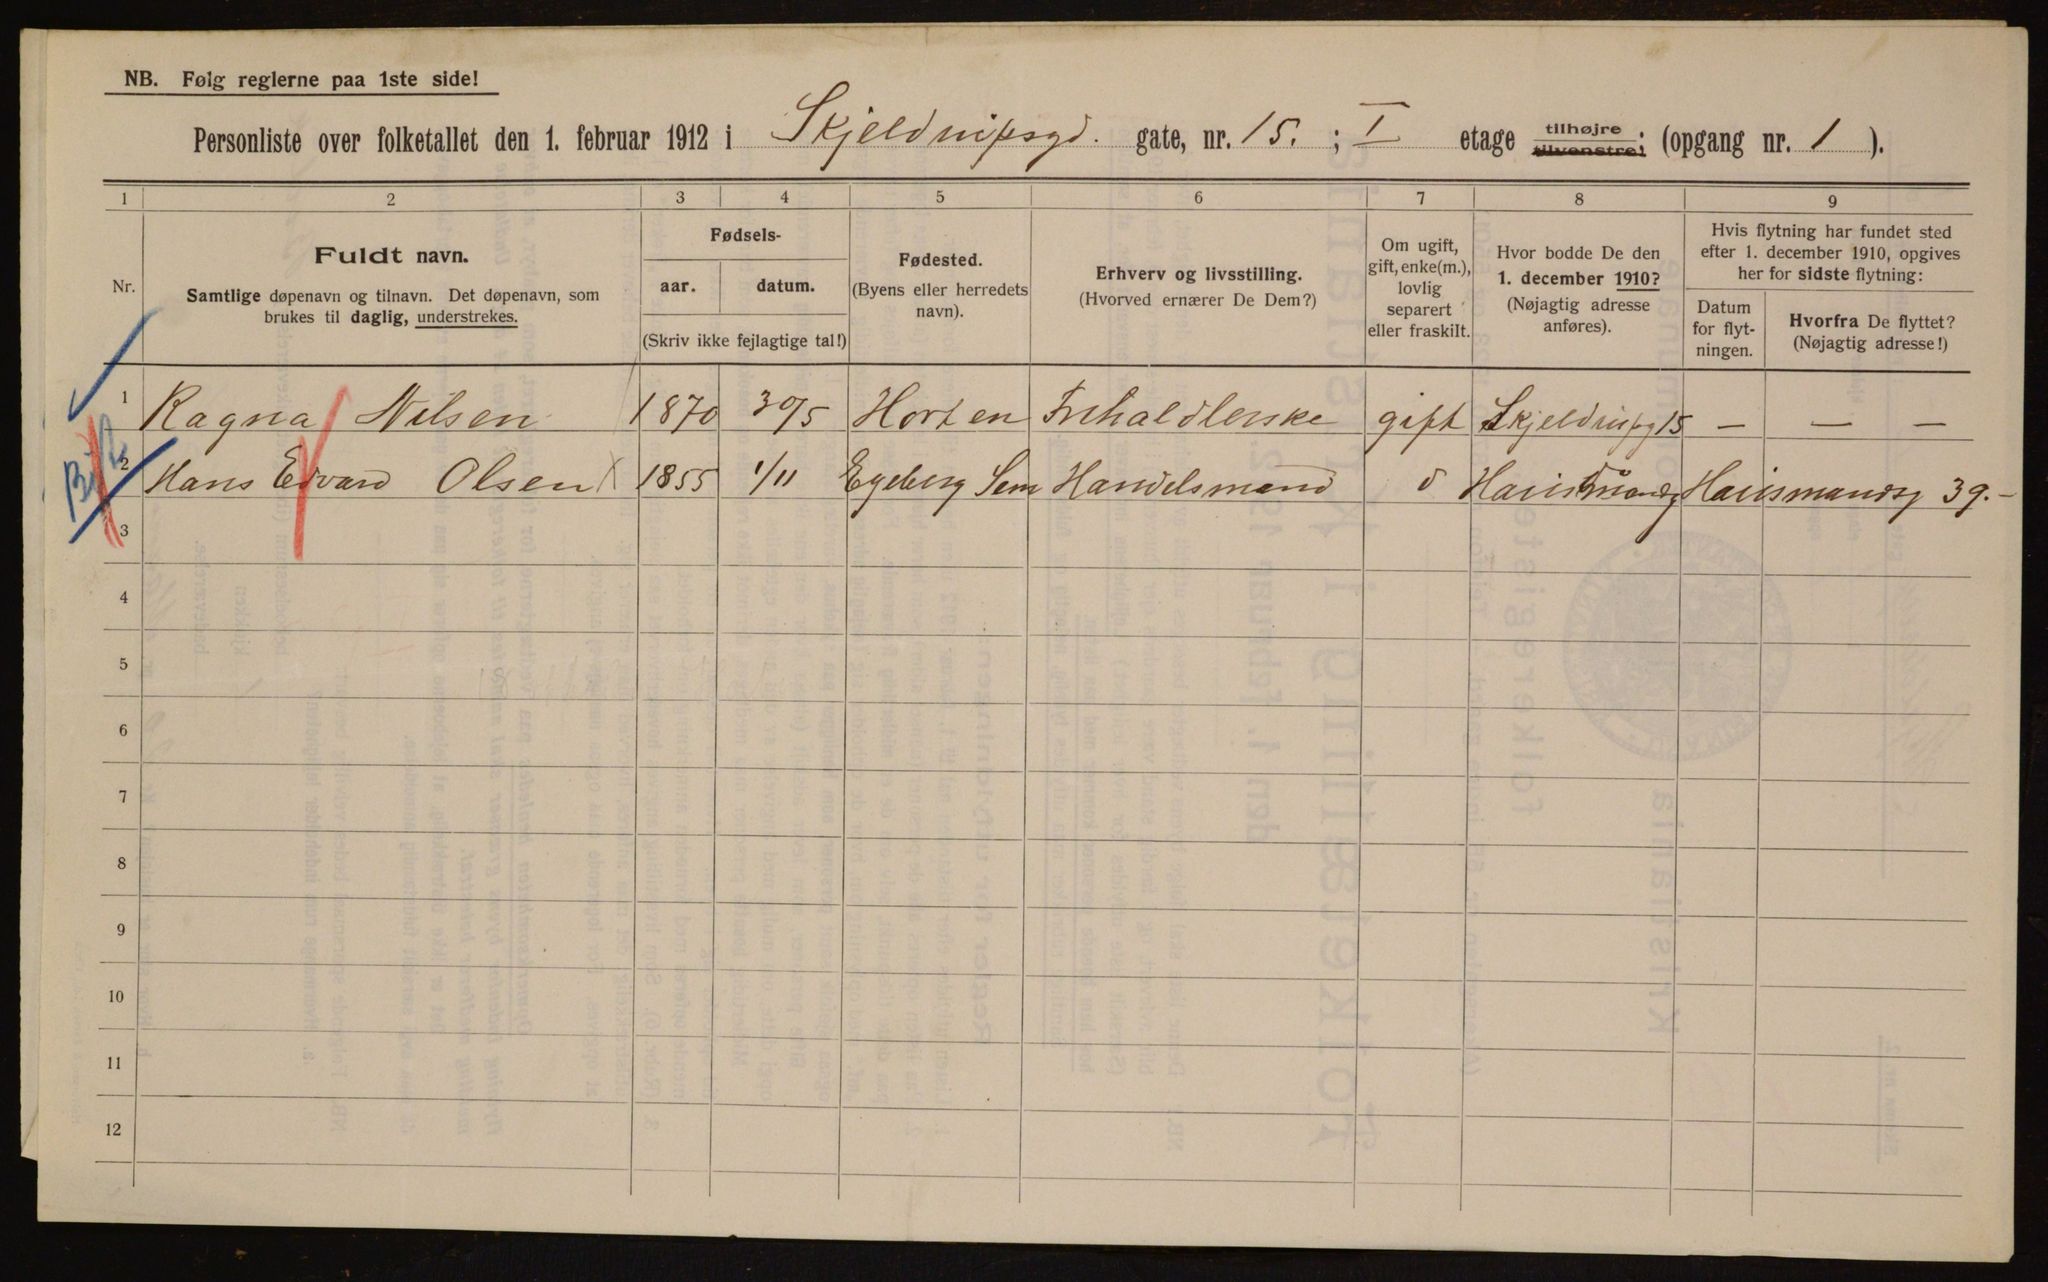 NB. Følg reglerne paa 1ste side!
Personliste over folketallet den 1. februar 1912 i Skjeldrupsgd. gate, nr. 15. ; I etage tilhøjre tilvenstre; (opgang nr. 1 ).
1 2 3 4 5 6 7 8 9
Nr.
Fuldt navn.
Samtlige døpenavn og tilnavn. Det døpenavn, som
brukes til daglig, understrekes.
Fødsels-
aar. datum.
(Skriv ikke fejlagtige tal!)
Fødested.
(Byens eller herredets
navn).
Erhverv og livsstilling.
(Hvorved ernærer De Dem?)
Om ugift,
gift, enke(m.),
lovlig
separert
eller fraskilt.
Hvor bodde De den
1. december 1910?
(Nøjagtig adresse
anføres).
Hvis flytning har fundet sted
efter 1. december 1910, opgives
her for sidste flytning:
Datum
for flyt-
ningen.
Hvorfra De flyttet?
(Nøjagtig adresse!)
1 Ragna Nilsen 1870 30/5 Horten gift Skjeldrupg 15 — — —
2 Hans Edvard Olsen 1855 1/11 Egeberg Sem Handelsmand Hausmandsg 39.-
3
4
5
6
7
8
9
10
11
12